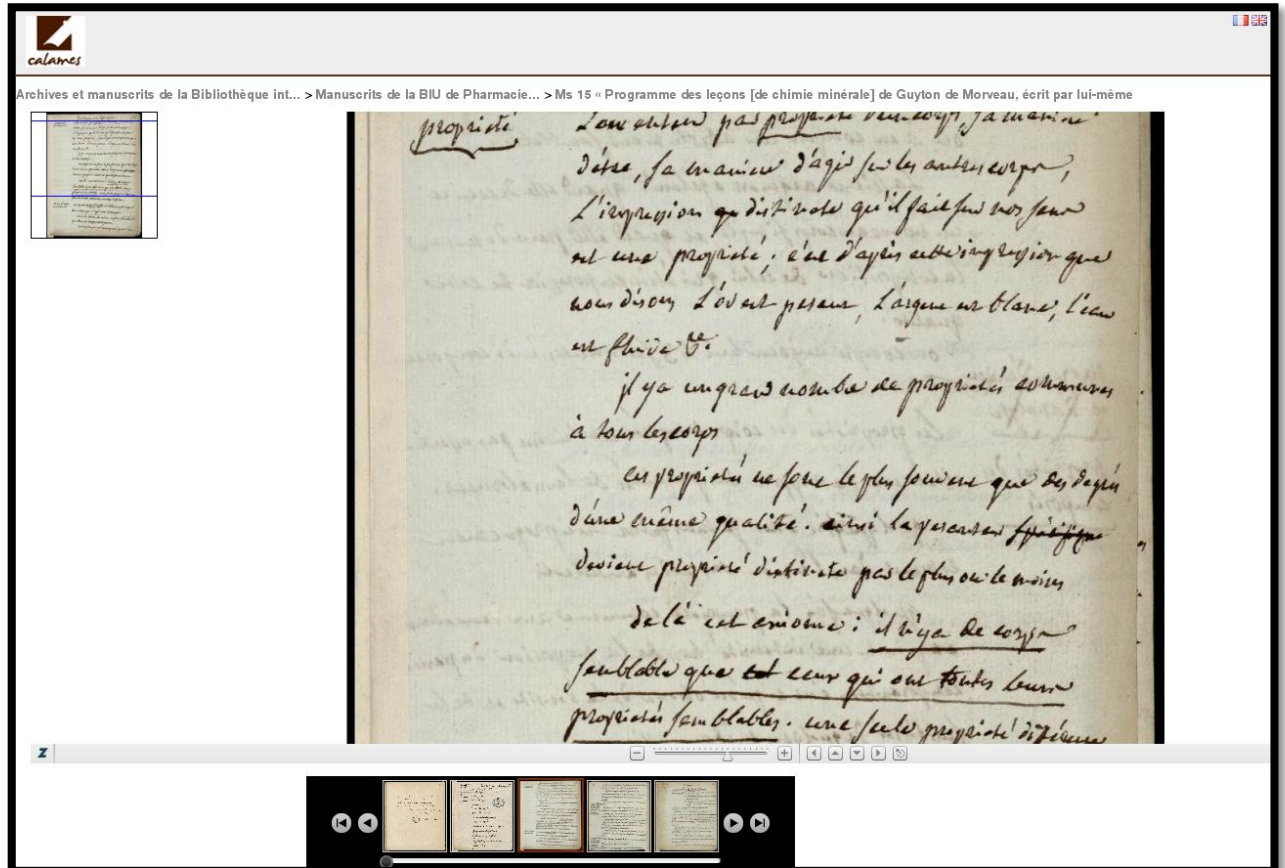 calames
Archives et manuscrits de la Bibliothèque int... > Manuscrits de la BIU de Pharmacie... > Ms 15 « Programme des leçons [de chimie minérale] de Guyton de Morveau, écrit par lui-même
propriété
L'on entend par propriété d'un corps sa maniere
d'etre, sa maniere d'agir sur les autres corps,
L'impression distincte qu'il fait sur nos sens
est une propriété; c'est d'après cette impression que
nous disons L'or est pesant, L'argent est blanc, l'eau
est fluide &c.
il y a un grand nombre de propriétés communes
à tous les corps
ces propriétés ne sont le plus souvent que des degrés
d'une même qualité. ainsi la pesanteur spécifique
devient propriété distincte par le plus ou le moins
de là cet axiome : il n'y a de corps
semblable que ceux qui ont toutes leurs
propriétés semblables. une seule propriété différente
Z